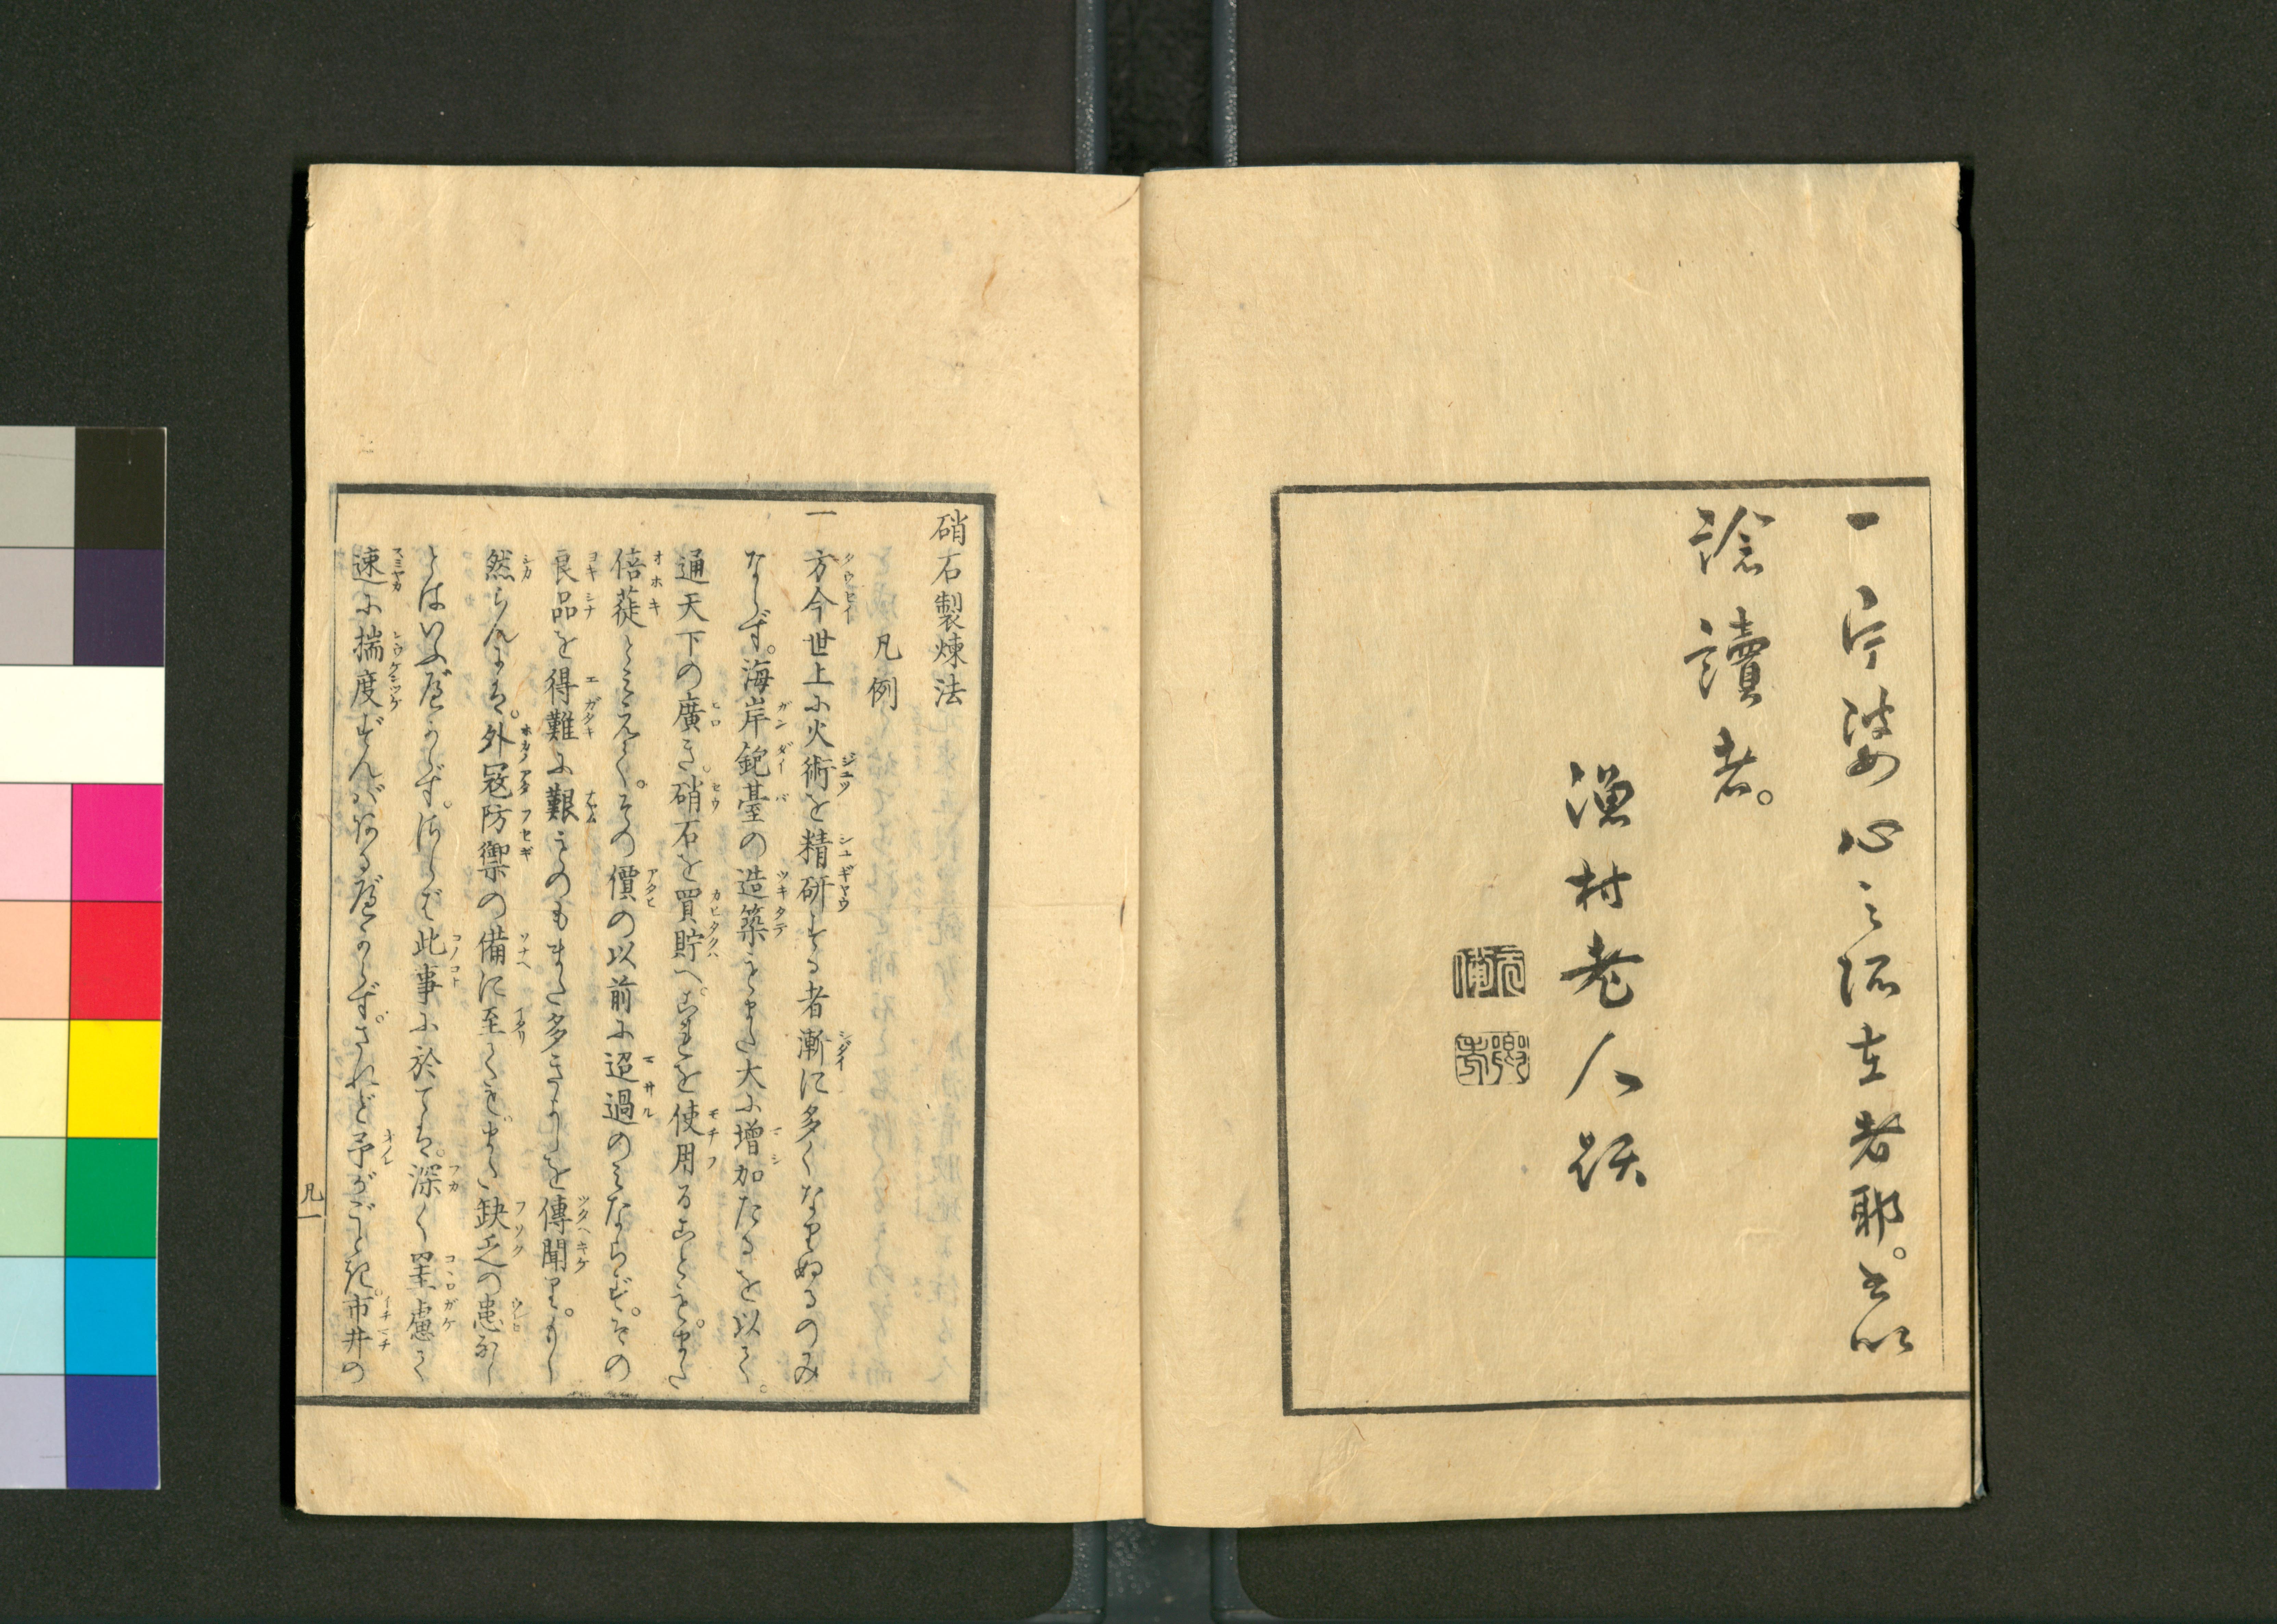 一片婆心之所在者耶。書以
諗讀者。
漁村老人跋
硝石製煉法
凡例
一方今世上に火術を精研する者漸に多くなりぬるのみ
ならず。海岸銃臺の造築もまた大に増加たるを以て。
通天下の廣き。硝石を買貯へ。これを使用ることも。また
倍蓰とみえて。その價の以前に超過のみならず。その
良品を得難に艱ものもまた多きよしを傳聞り。もし
然らんには。外冦防禦の備に至てもまた缺乏の患なし
とはいふべからず。されば此事に於ては。深く罣慮て
速に揣度ずんばあるべからず。されど予がごとき。市井の
凡一